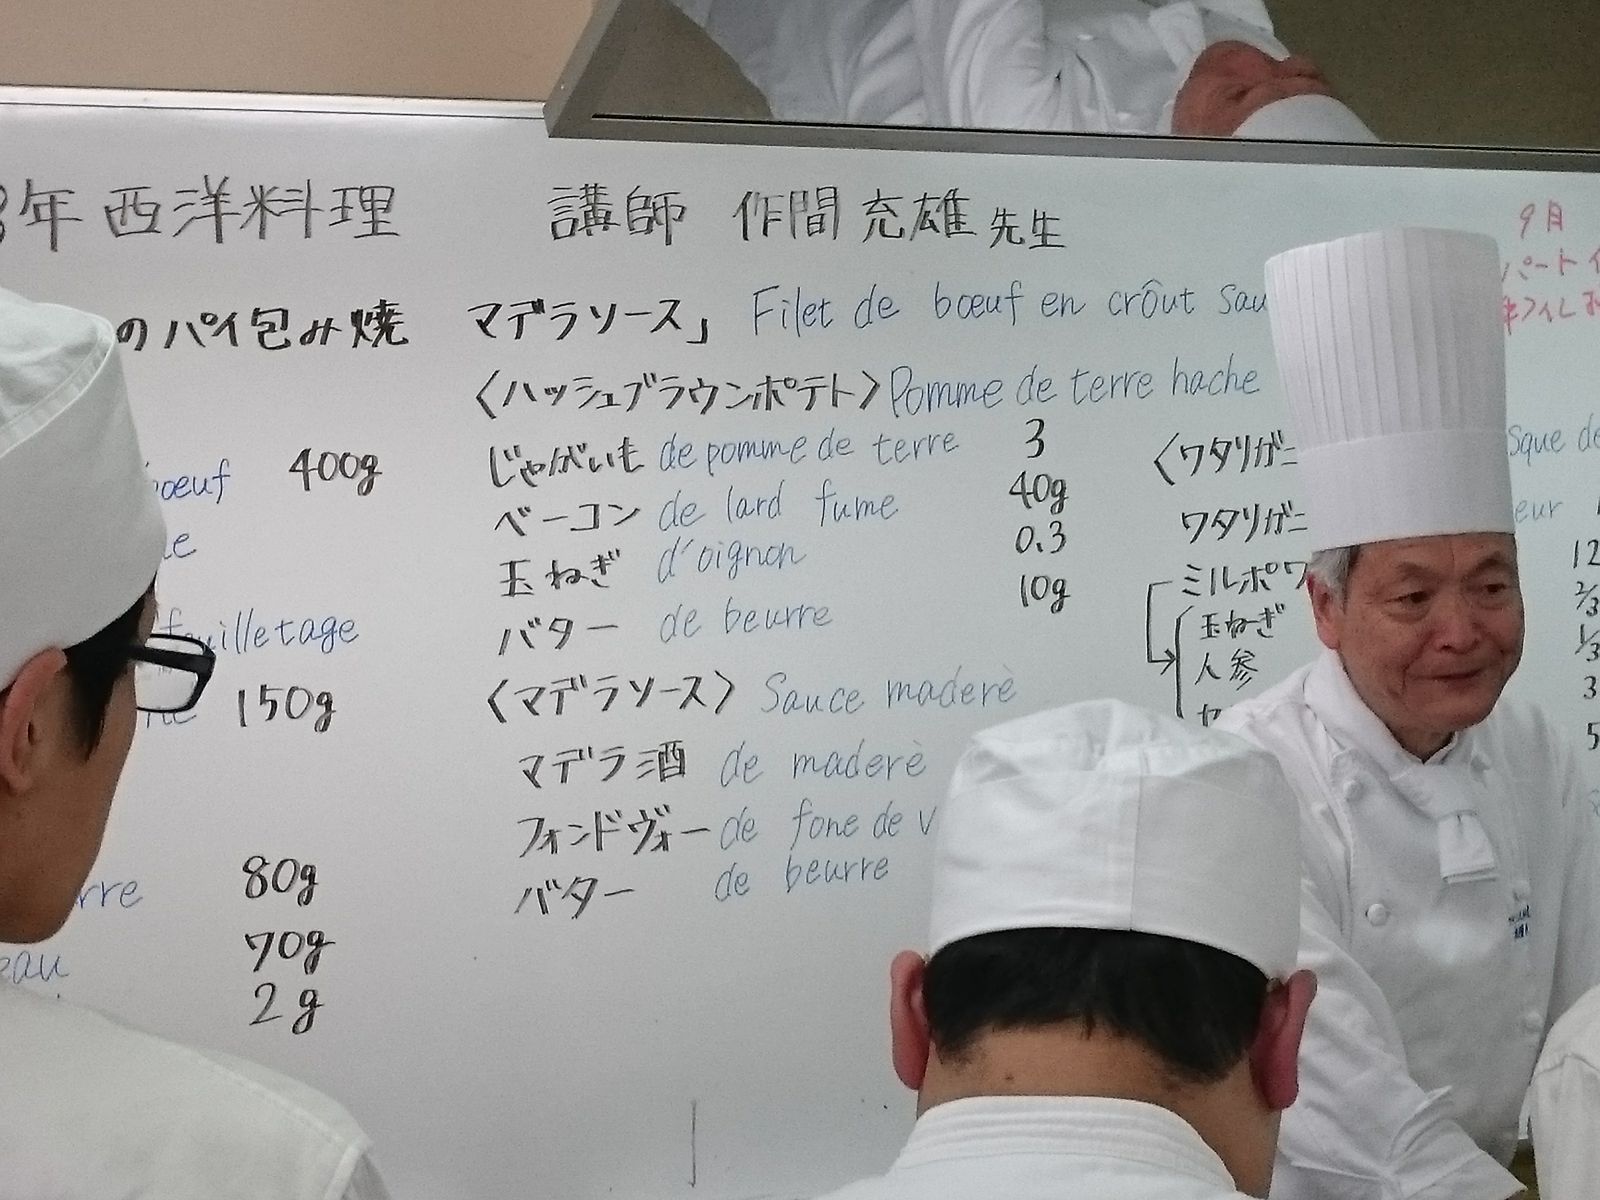 3年 西洋料理 講師 作間 充雄 先生
のパイ包み焼 マデラソース」 Filet de bœuf en crôut sau
bœuf 400g
feuilletage
150g
80g
70g
eau
2g
〈ハッシュブラウンポテト〉 Pomme de terre hache
じゃがいも de pomme de terre 3
ベーコン de lard fume 40g
玉ねぎ d'oignon 0.3
バター de beurre 10g
〈マデラソース〉 Sauce maderè
マデラ酒 de maderè
フォンドヴォー de fone de v
バター de beurre
〈ワタリガニ
ワタリガニ
ミルポワ
玉ねぎ
人参
セ
sque de
eur
12
2/3
1/3
3
5
9月
パート